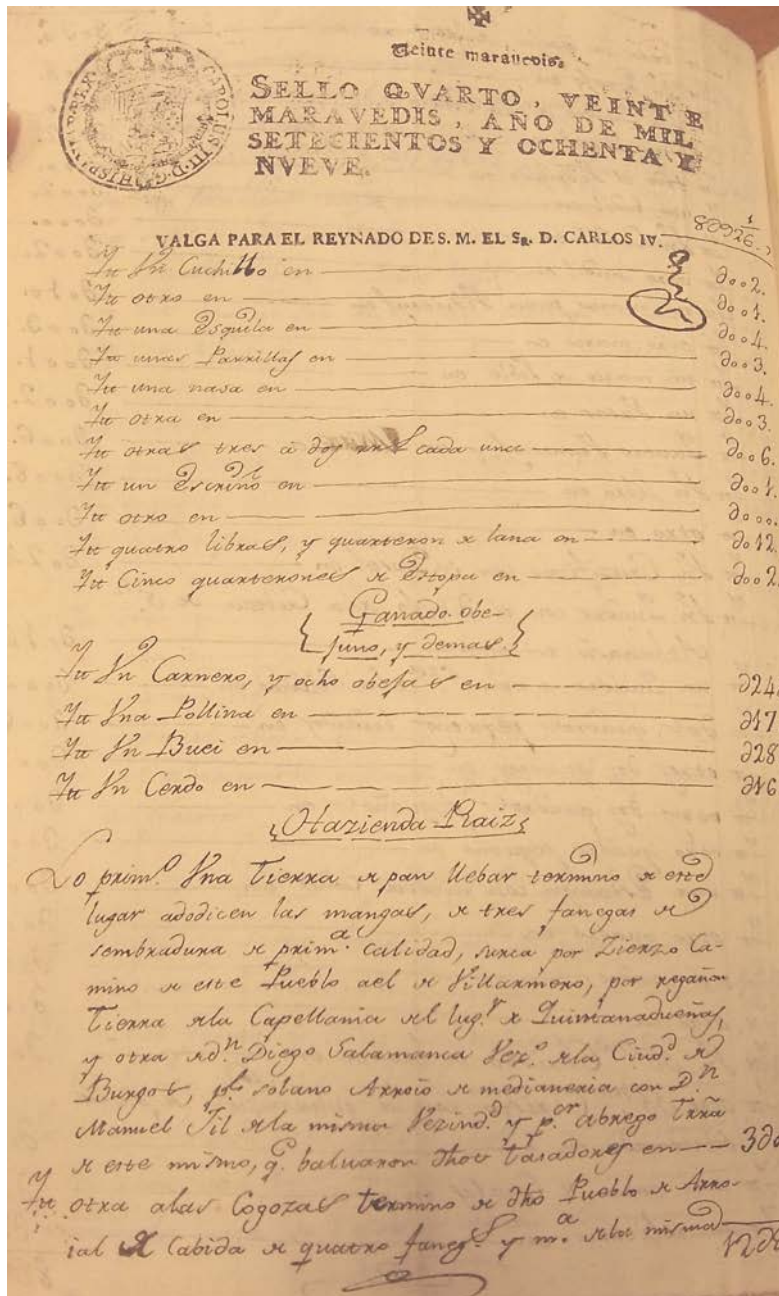 Veinte maravedis.
SELLO QVARTO, VEINTE
MARAVEDIS, AÑO DE MIL
SETECIENTOS Y OCHENTA Y
NVEVE.
CAROLUS III D. G. HISP
VALGA PARA EL REYNADO DE S. M. EL SR. D. CARLOS IV.
Itt Vn Cuchillo en 002.
Itt otro en 001.
Itt una Esquila en 004.
Itt unas Parrillas en 003.
Itt una nasa en 004.
Itt otra en 003.
Itt otras tres a dos rrs cada una 006.
Itt un Escriño en 001.
Itt otro en
Itt quatro libras, y quarteron de lana en 012.
Itt Cinco quarterones de Estopa en 002
Ganado obe-
juno, y demas.
Itt Vn Carnero, y ocho obejas en 024.
Itt Vna Pollina en 017
Itt Vn Buei en 028
Itt Vn Cerdo en 016
Hazienda Raiz
Lo primo Vna Tierra de pan llebar termino de este
lugar adodicen las mangas, de tres fanegas de
sembradura de prima calidad, surca por Zierzo Ca-
mino de este Pueblo ael de Villarmero, por regañon
Tierra dela Capellania del lugr de Quintanadueñas,
y otra de dn Diego Salamanca Vezo dela Ciudd de
Burgos, pr solano Arroio de medianeria con Dn
Manuel Gil dela misma Vezindd y por abrego Trra
de este mismo, q. baluaron dhos tasadores en
Itt otra alas Cogozas termino de dho Pueblo de Arro-
ial de Cabida de quatro fanegs y ma dela misma